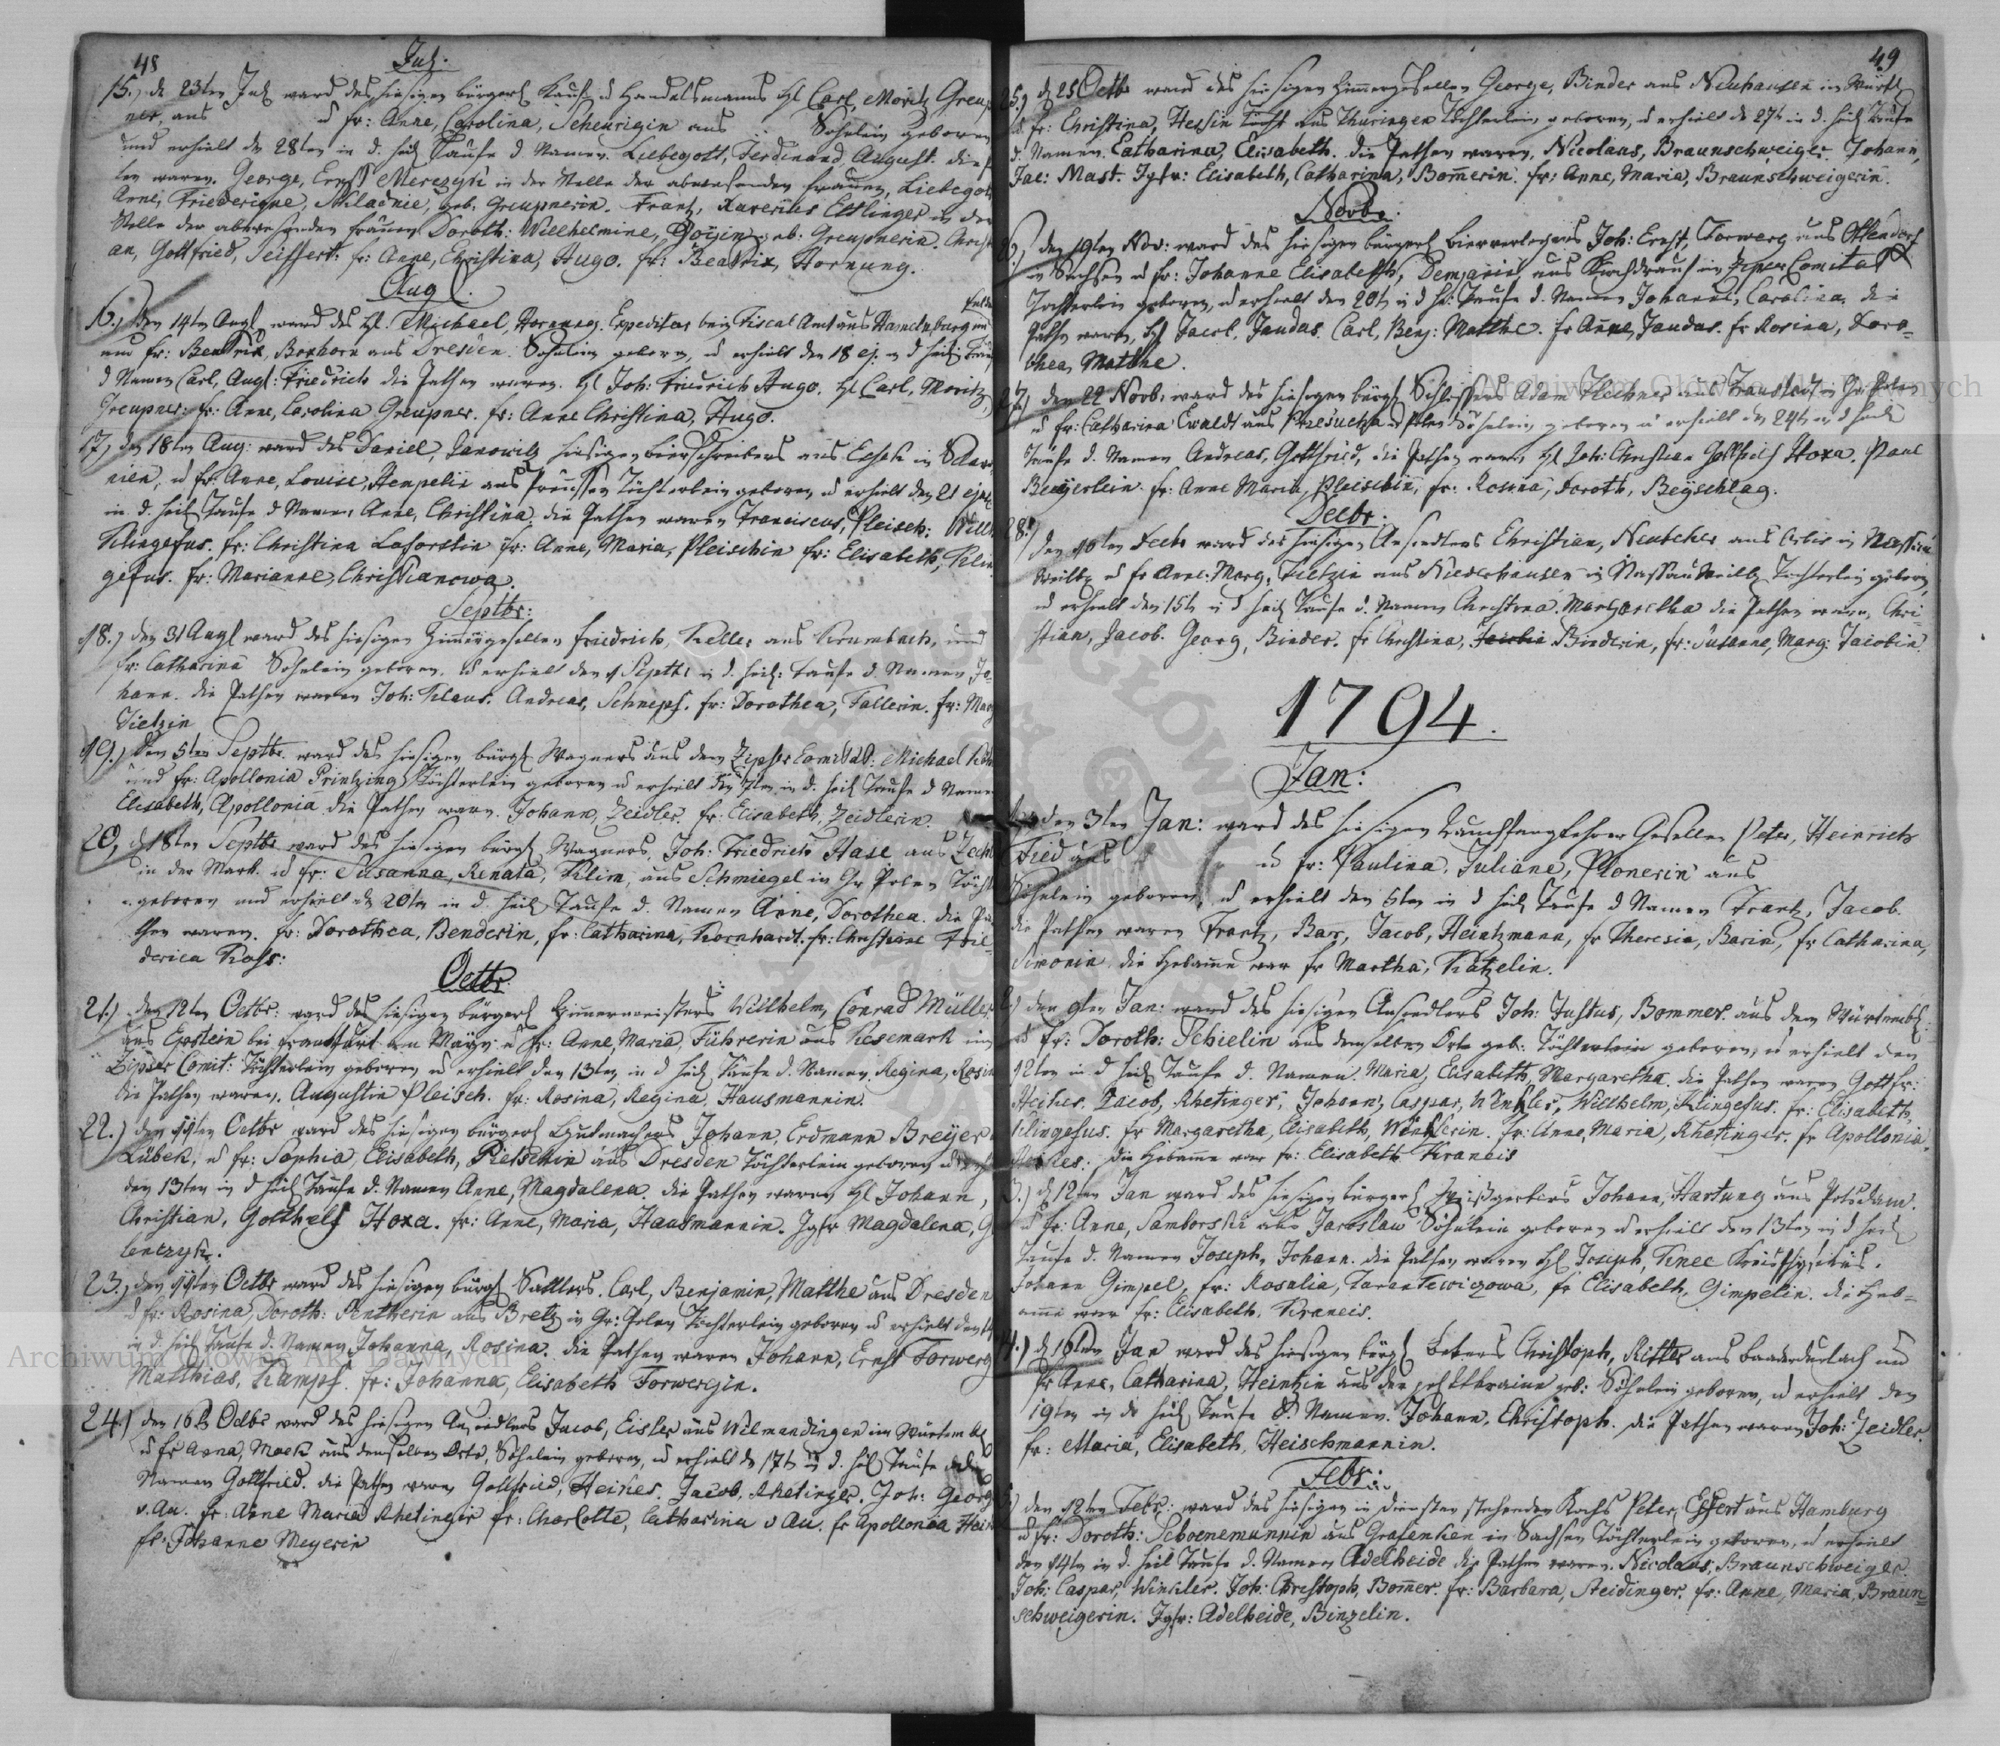 48
Jul.
15., d 23ten Jul ward des hiesigen bürgerl Kauf u Handelsmanns H Carl, Moritz Greup
ner, aus u fr: Anne, Carolina, Scheurigin aus Söhnlein geboren
und erhielt d 28ten in d. heil Taufe d Namen. Liebegott, Ferdinand August. die P
ten waren. George, Ernst Merczyk in der Stelle der abwesenden Frauen, Liebegott
Anne, Friederique, geb. Greupnerin. Frantz, Xaverius Eltlinger in der
Stelle der abwesenden Frauen Doroth: Wilhelmine, geb. Greupnerin. Christi
an, Gottfried, Seiffert. fr: Anne, Christina, Hugo. fr: Beatrix, Hornung.
Aug.
16., den 14ten Augl ward des H. Michael, Hornung. Expeditor beim Fiscal Amt aus Hamelnburg im Fulda
und fr: Beatrix, Boxhorn aus Dresden. Söhnlein geboren, u erhielt den 18 ej. in d heil Taufe
d Namen Carl, Augl: Friedrich die Pathen waren. H Joh: Friedrich Hugo. H Carl, Moritz,
Greupner: fr: Anne, Carolina Greupner. fr: Anne Christina, Hugo.
17, den 18ten Aug: ward des Daniel, Janowitz hiesigen Bierschreibers aus Essek in Sclavo
nien, u fr: Anne, Louise, Hempelin aus Preußen Töchterlein geboren u erhielt den 21 ejusd
in d. heil Taufe d Namen, Anne, Christina. die Pathen waren Franciscus, Pleisch: Willh
Klingefus. fr: Christina Laforstin fr: Anne, Maria, Pleischin fr: Elisabeth, Klin
gefus. fr: Marianne, Christianowa.
Septbr:
18., den 31 Augl ward des hiesigen Zimmergesellen Friedrich, Keller aus Krumbach, und
fr: Catharina Söhnlein geboren. u erhielt den 1 Septbr in d. heil: Taufe d. Namen, Jo-
hann. die Pathen waren Joh: Klaus. Andreas, Schnepf. fr: Dorothea, Fallerin. fr: Marg
Tietzin
19., den 5ten Septbr. ward des hiesigen bürgl Wagners aus dem Zipser Comitat: Michael
und fr: Apollonia Printzing Töchterlein geboren u erhielt den 7ten in d. heil Taufe d Namen
Elisabeth, Apollonia die Pathen waren. Johann, Zeidler. fr: Elisabeth, Zeidlerin.
20, d 18ten Septbr ward des hiesigen bürgl Wagners, Joh: Friedrich Hase aus
in der Mark. u fr: Susanna, Renata, Klim, aus Schmiegel in Gr Polen Töcht
geboren und erhielt d 20ten in d. heil Taufe d. Namen Anne, Dorothea. die Pa
then waren. fr: Dorothea, Benderin, fr: Catharina, Kornhardt. fr: Christine Frie-
derica Koss:
Octbr
21.) den 12ten Octbr: ward des hiesigen bürgerl Zimmermeisters Willhelm, Conrad Müller
aus Epstein bei Frankfurt am Mayn u fr: Anne, Maria, Führerin aus Kesemark im
Zipser Comit: Töchterlein geboren u erhielt den 13ten in d heil Taufe d. Namen. Regina, Rosin
die Pathen waren. Augustin Pleisch. fr: Rosina, Regina. Hausmannin.
22.) den 11ten Octbr ward des hiesigen bürgerl Hutmachers Johann, Erdmann Breyer
Lübek, u fr: Sophia, Elisabeth, Pietschin aus Dresden Töchterlein geboren u
den 13ten in d heil Taufe d. Namen Anne, Magdalena. die Pathen waren H Johann,
Christian, Gotthelf Hoxa. fr: Anne, Maria, Hausmannin. Jgfr Magdalena,
lenczyk.
23., den 11ten Octbr ward des hiesigen bürgl Sattlers. Carl, Benjamin, Matthe aus Dresden
u fr: Rosina, Doroth: Pentherin aus Bretz in Gr: Polen Töchterlein geboren u erhielt den 14
in d. heil Taufe d. Namen Johanna, Rosina. die Pathen waren Johann, Ernst Forwerg
Matthias, Kampf. fr: Johanna, Elisabeth Forwergin.
24.) den 16t Octbr ward des hiesigen Ansiedlers Jacob, Eisler aus Wilmandingen im Würtembl
u fr Anna, Maek aus demselben Orte, Söhnlein geboren, u erhielt d 17t in d. heil Taufe den
Namen Gottfried. die Pathen waren Gottfried, Heiches. Jacob, Rhetinger. Joh: Georg
v. Au. fr: Anne Maria Rhetinger fr: Charlotte, Catharina v Au. fr Apollonia Hei
fr: Johanne Meyerin
49
25., d 25 Octbr ward des hiesigen Zimmergesellen George, Binder aus Neuhausen im Würtl
u fr: Christina, Hessin Töcht aus Thuringen Töchterlein geboren, u erhielt d 27t in d. heil Taufe
d. Namen. Catharina, Elisabeth. die Pathen waren. Nicolaus, Braunschweiger. Johann,
Jac: Mast. Jgfr: Elisabeth, Catharina, Bom̃erin. fr: Anne, Maria, Braunschweigerin.
Novbr.
26., den 19ten Nov: ward des hiesigen bürgerl Bierverlegers Joh: Ernst, Forwerg aus Ottendorf
in Sachsen u fr: Johanne Elisabeth, aus Kirchdrauf im Zipser Comitat
Töchterlein geboren, u erhielt den 20t in d hl: Taufe d. Namen Johanne, Carolina. die
Pathen waren, H Jacob, Jaudas. Carl, Benj: Matthe. fr Anne, Jaudas. fr Rosina, Doro-
thea, Matthe.
27., den 22 Novb: ward des hiesigen bürgl Schlossers Adam Flechner aus Fraustadt in Gr: Polen
u fr: Catharina Ewaldt aus in Polen Söhnlein geboren u erhielt den 24ten in d heil
Taufe d. Namen Andreas, Gottfried, die Pathen waren H Joh: Christian Gotthelf Hoxa. Paul
Beyerlein. fr: Anne Maria, Pleischin, fr: Rosina, Doroth, Beyschlag.
Decbr:
28.) den 10ten Decbr ward des hiesigen Ansiedlers Christian, Neutcher aus in Nassau
Weilb u fr Anne: Marg, Tietzin aus Niederhausen in Nassau Weilb Töchterlein geboren,
u erhielt den 15t in d heil Taufe d. Namen Christina. Margaretha die Pathen waren, Chri-
stian, Jacob. Georg, Binder. fr Christina, Binderin, fr: Susanne, Marg: Jacobin.
1794.
Jan:
1., den 3ten Jan: ward des hiesigen Rauchfangkehrer Gesellen Peter, Heinrich
Fied aus u fr: Paulina, Juliane, Plonerin aus
Söhnlein geboren, u erhielt den 5ten in d heil Taufe d Namen Frantz, Jacob.
die Pathen waren Frantz, Bar, Jacob, Heintzmann, fr Theresia, Barin, fr Catharina,
Simonin. die Hebamme war fr Martha, Katzelin.
2.) den 9ten Jan: ward des hiesigen Ansiedlers Joh: Justus, Bommer aus dem Würtembl:
u fr: Doroth: Schielin aus demselben Orte geb: Töchterlein geboren, u erhielt den
12ten in d heil Taufe d. Namen. Maria, Elisabeth, Margaretha. die Pathen waren Gottfr:
Heiches. Jacob, Rhetinger, Johann, Caspar, Winkler, Willhelm, Klingefus. fr: Elisabeth,
Klingefus. fr Margaretha, Elisabeth, Winklerin. fr: Anne, Maria, Rhetinger. fr Apollonia,
Heiches. die Hebamme war fr: Elisabeth Kraneis
3.) d 12ten Jan ward des hiesigen bürgerl Weißgerbers Johann, Hartung aus Potsdam.
u fr: Anne, Samborski aus Jaroslaw Söhnlein geboren u erhielt den 13ten in d heil
Taufe d. Namen Joseph, Johann. die Pathen waren H Joseph, Knee Kreisphysikus.
Johann Gimpel, fr: Rosalia, Tarantewizowa, fr Elisabeth, Gimpelin. die Heb-
amme war fr: Elisabeth. Kraneis.
4.) d 16ten Jan ward des hiesigen bürgl Bekers Christoph, Ritter aus Baaderdurlach und
fr Anne, Catharina, Heintzin aus der Ukraine geb: Söhnlein geboren, u erhielt den
19ten in d heil Taufe d. Namen. Johann, Christoph. die Pathen waren Joh: Zeidler.
fr: Maria, Elisabeth, Heischmannin.
Febr:
5) den 12ten Febr: ward des hiesigen in Diensten stehenden Kochs Peter, Effert aus Hamburg
u fr: Doroth: Schoenemannin aus Grafenhen in Sachsen Töchterlein geboren, u erhielt
den 14ten in d. heil Taufe d. Namen Adelheide die Pathen waren. Nicolaus, Braunschweiger.
Joh: Caspar, Winkler. Joh: Christoph, Bom̃er. fr: Barbara, Heidinger. fr: Anne, Maria, Braun-
schweigerin. Jgfr: Adelheide, Binzelin.
Archiwum Główne Akt Dawnych
Archiwum Główne Akt Dawnych